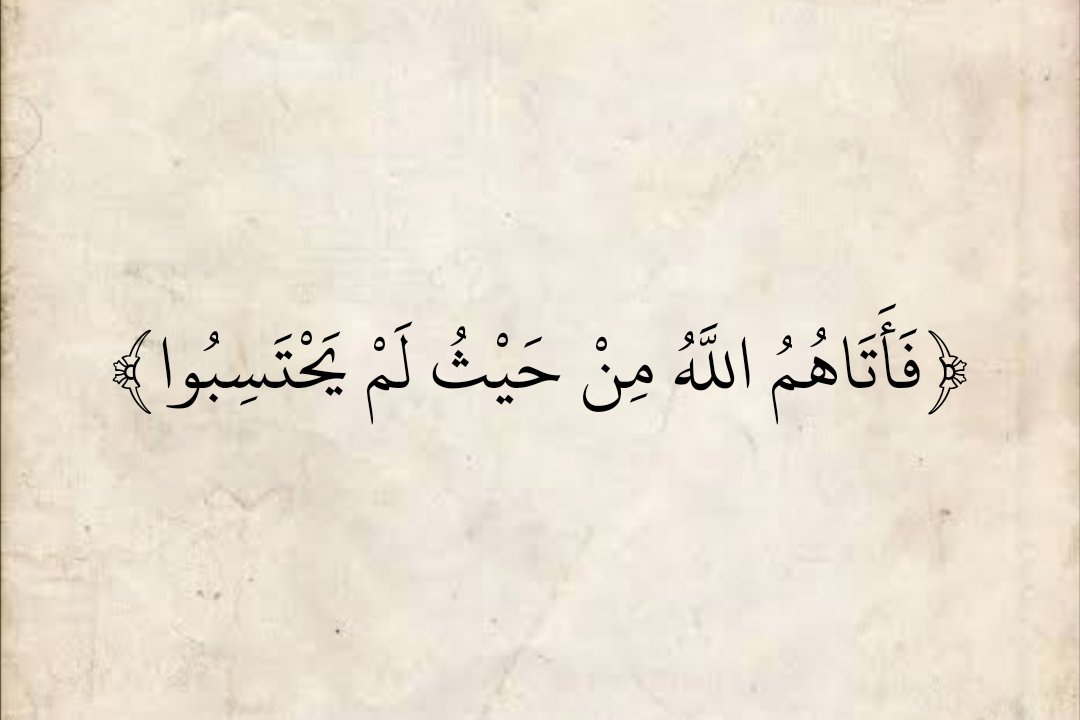 ﴿فَأَتَاهُمُ اللَّهُ مِنْ حَيْثُ لَمْ يَحْتَسِبُوا﴾